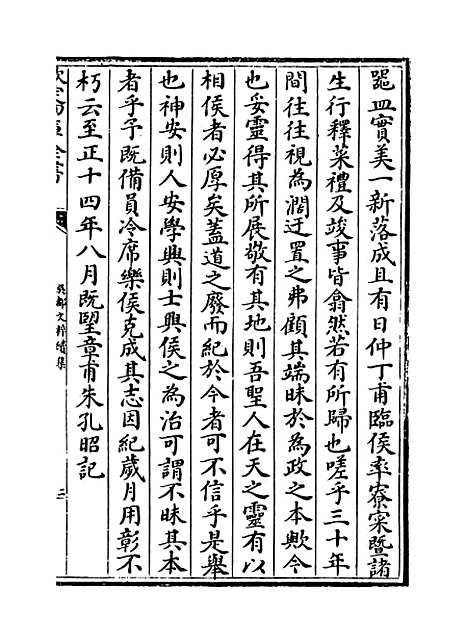 器皿實美一新落成且有日仲丁甫臨侯率寮寀暨諸
生行釋菜禮及竣事皆翕然若有所歸也嗟乎三十年
間往往視為濶迂置之弗顧其端昧於為政之本歟今
也妥靈得其所展敬有其地則吾聖人在天之靈有以
相侯者必厚矣蓋道之廢而紀於今者可不信乎是舉
也神安則人安學興則士興侯之為治可謂不昧其本
者乎予既備員冷席樂侯克成其志因紀歲月用彰不
朽云至正十四年八月既望章甫朱孔昭記
欽定四庫全書
吳都文粹續集
三